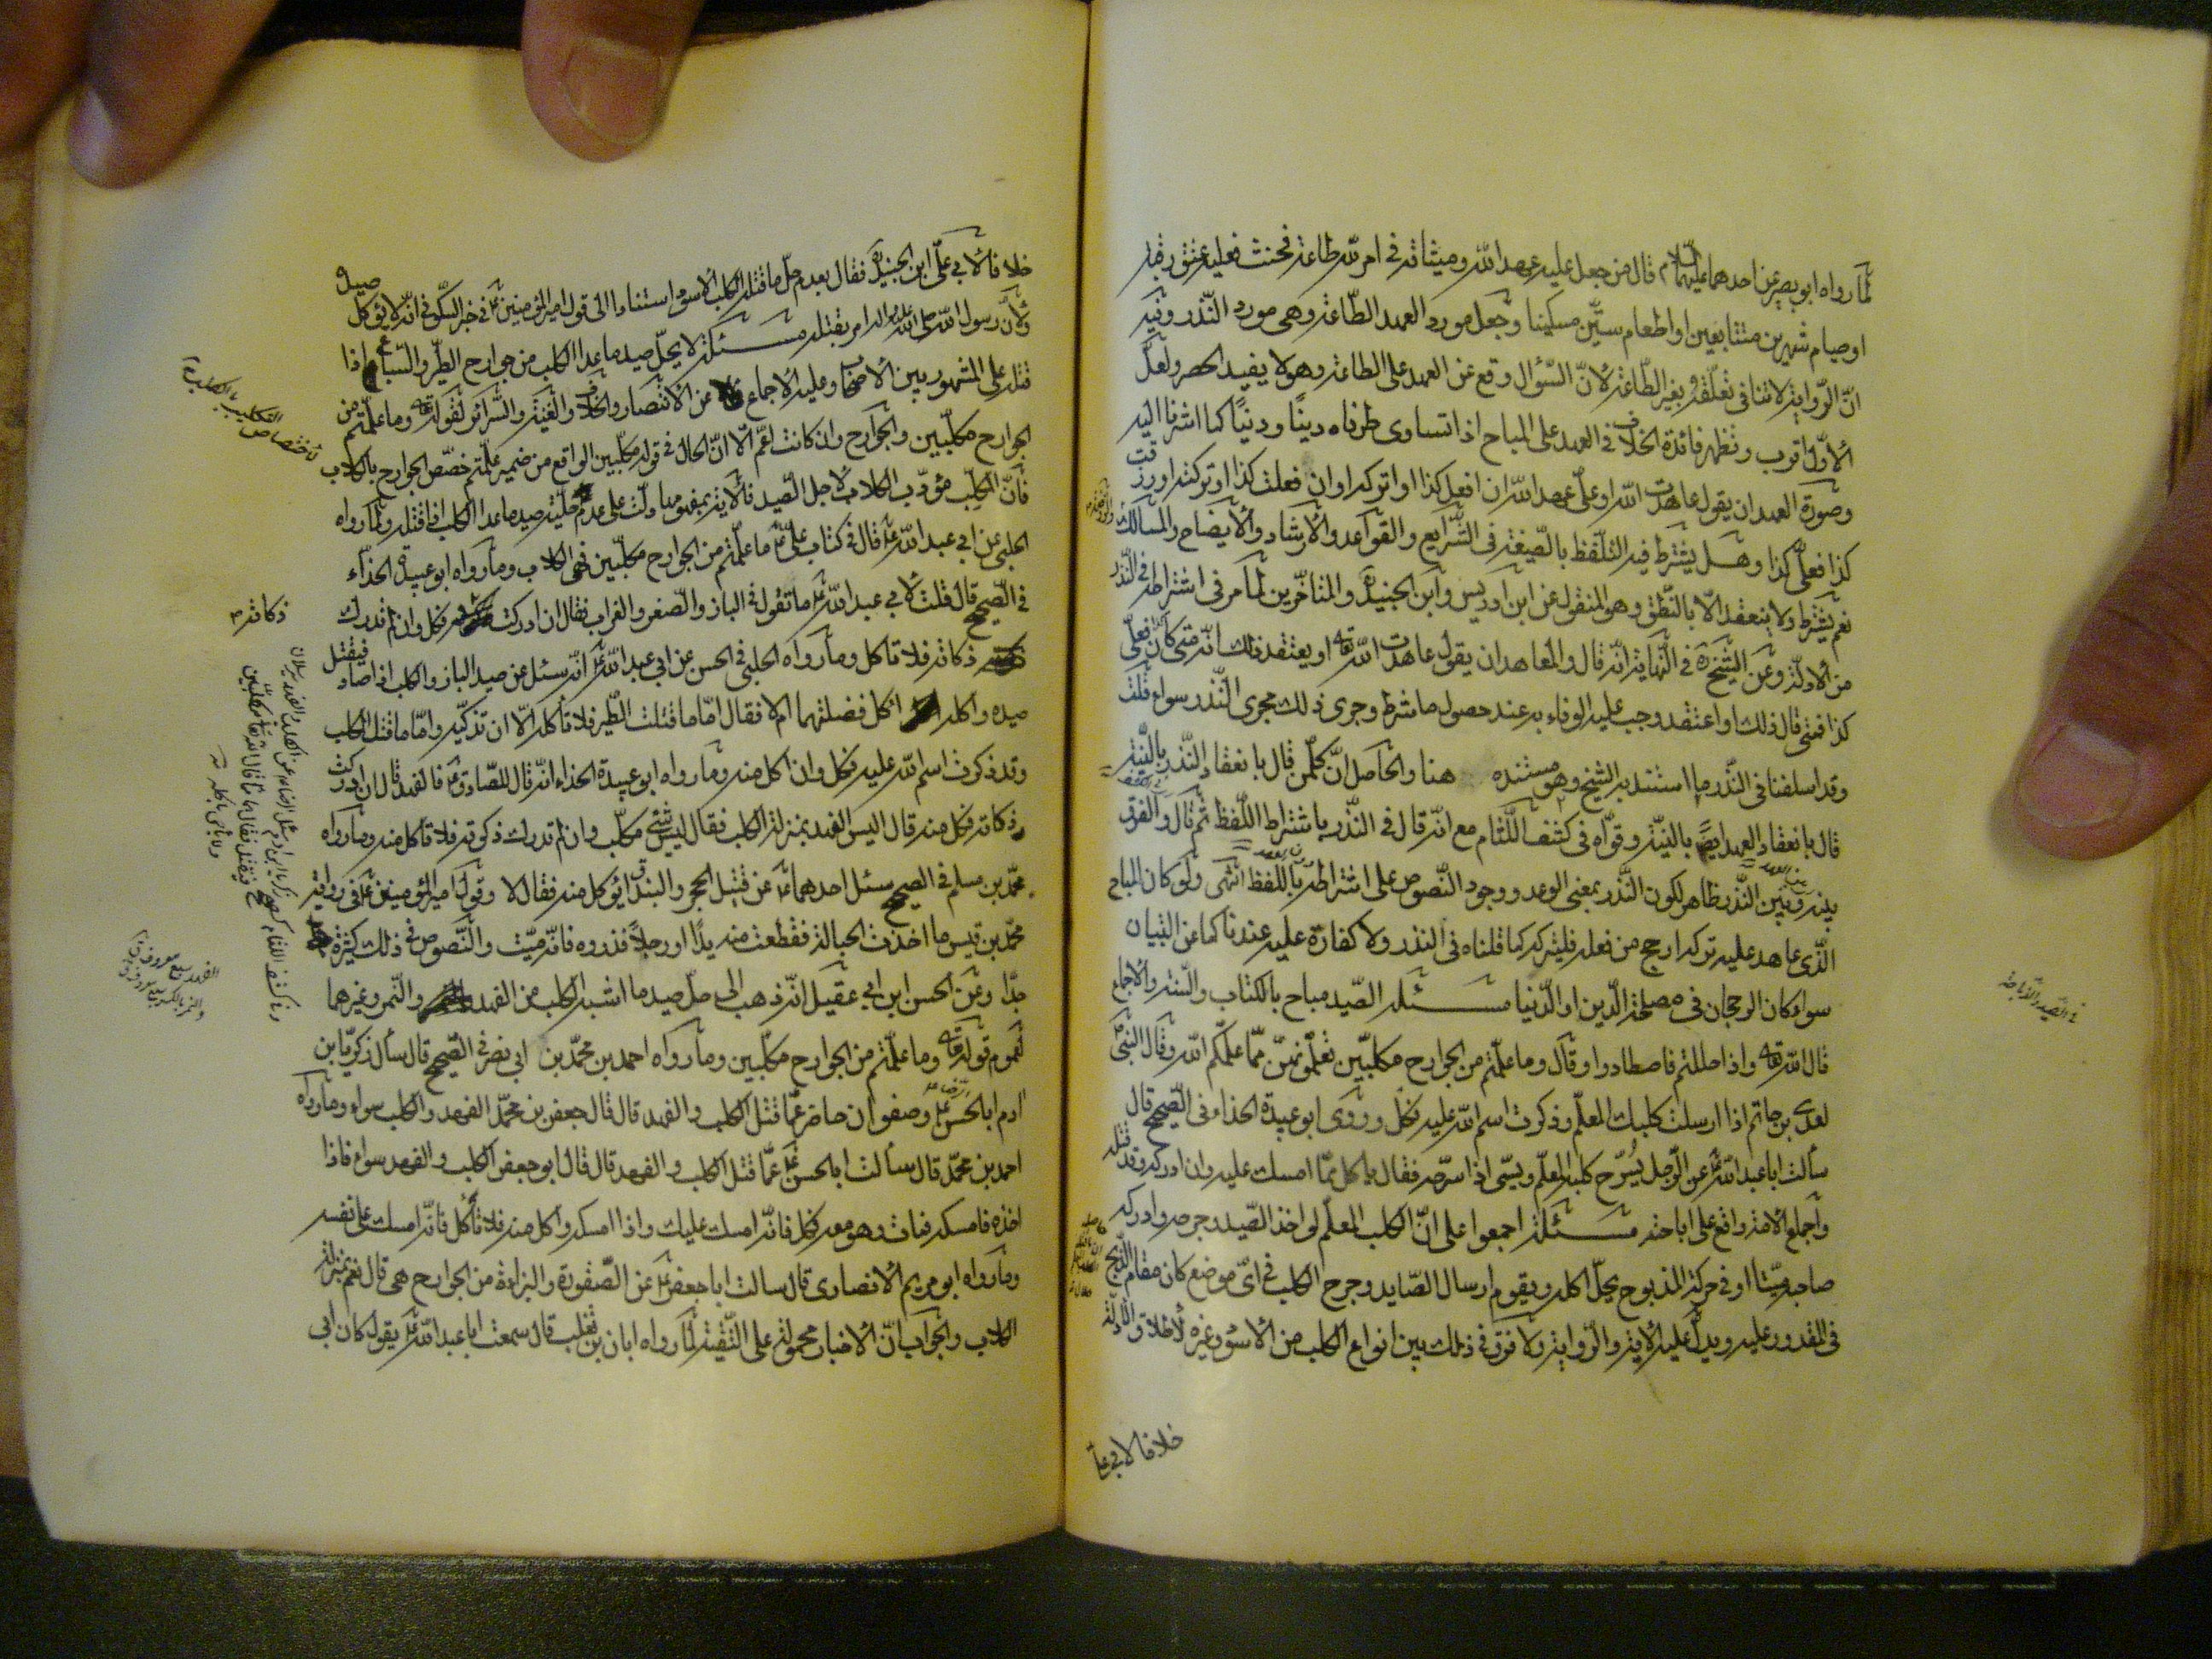 لما رواه ابو بصير عن احدهما عليهما السلام قال من جعل عليه عهد الله وميثاقه في امر لله طاعة فحنث فعليه عتق رقبة
او صيام شهرين متتابعين او اطعام ستين مسكينا وجعل مورد العهد الطاعة وهي مورد النذر وفيه
ان الرواية لا تنافي تعلقه بغير الطاعة لان السؤال وقع عن العهد على الطاعة وهو لا يفيد الحصر ولعل
الاول اقرب وتظهر فائدة الخلاف في العهد على المباح اذا تساوى طرفاه دينا ودنيا كما اشرنا اليه
وصورة العهد ان يقول عاهدت الله او على عهد الله ان افعل كذا او اتركه او ان فعلت كذا او تركته او رزقت
كذا فعلى كذا وهل يشترط فيه التلفظ بالصيغة في الشرايع والقواعد والارشاد والايضاح والمسالك
نعم يشترط ولا ينعقد الا بالنطق وهو المنقول عن ابن ادريس وابن الجنيد والمتاخرين لما مر في اشتراطه في النذر
من الادلة وعن الشيخ في النهاية انه قال والمعاهد ان يقول عاهدت الله تعالى او يعتقد ذلك انه متى كان فعلى
كذا فمتى قال ذلك او اعتقد وجب عليه الوفاء به عند حصول ما شرط وجرى ذلك مجرى النذر سواء قلت
وقد اسلفنا في النذر ما استند به الشيخ وهو مستنده هنا والحاصل ان كل من قال بانعقاد النذر بالنية
قال بانعقاد العهد ايضا بالنية وقواه في كشف اللثام مع انه قال في النذر باشتراط اللفظ ثم قال والفرق
بينه وبين النذر ظاهر لكون النذر بمعنى الوعد ووجود النصوص على اشتراطه باللفظ انتهى ولو كان المباح
الذي عاهد عليه تركه ارجح من فعله فليتركه كما قلناه في النذر ولا كفارة عليه عندنا كما عن التبيان
سواء كان الرجحان في مصلحة الدين او الدنيا مسئلة الصيد مباح بالكتاب والسنة والاجماع
قال الله تعالى واذا حللتم فاصطادوا وقال وما علمتم من الجوارح مكلبين تعلمونهن مما علمكم الله وقال النبي
لعدي بن حاتم اذا ارسلت كلبك المعلم وذكرت اسم الله عليه فكل وروى ابو عبيدة الحذاء في الصحيح قال
سألت ابا عبد الله عن الرجل يسرح كلبه المعلم ويسمى اذا سرحه فقال يأكل مما امسك عليه وان ادركه وقتله
واجماع الامة واقع على اباحته مسئلة اجمعوا على ان الكلب المعلم لو اخذ الصيد وجرحه وادركه
صاحبه ميتا او في حركة المذبوح يحل اكله ويقوم ارسال الصايد وجرح الكلب في اى موضع كان مقام الذبح
في المقدور عليه ويدل عليه الآية والرواية ولا فرق في ذلك بين انواع الكلب من الاسود وغيره لاطلاق الادلة
خلافا لابي علي
في الصيد والذباحة
خلافا لابي على ابن الجنيد فقال بعدم حل ما قتله الكلب الاسود استنادا الى قول امير المؤمنين في خبر السكوني انه لا يؤكل صيده
ولان رسول الله صلى الله عليه واله امر بقتله مسئلة لا يحل صيد ما عدا الكلب من جوارح الطير والسباع اذا
قتله على المشهور بين الاصحاب وعليه الاجماع عن الانتصار والخلاف والغنية والسرائر لقوله تعالى وما علمتم من
الجوارح مكلبين والجوارح وان كانت تعم الا ان الحال في قوله مكلبين الواقع من ضمير علمتم خصص الجوارح بالكلاب
فان المكلب مؤدب الكلاب لاجل الصيد فالاية بمفهومها دلت على عدم حلية صيد ما عدا الكلب اذا قتله ولما رواه
الحلبي عن ابي عبد الله قال في كتاب على ما علمتم من الجوارح مكلبين فهى الكلاب وما رواه ابو عبيدة الحذاء
في الصحيح قال قلت لابي عبد الله ما تقول في الباز والصقر والعقاب فقال ان ادركت ذكاته فكل وان لم تدرك
ذكاته فلا تاكل وما رواه الحلبي في الحسن عن ابي عبد الله انه سئل عن صيد الباز والكلب اذا صاد فيقتل
صيده واكله اكل فضلتهما ام لا فقال اما ما قتلت الطير فلا تاكله الا ان تذكيه واما ما قتل الكلب
وقد ذكرت اسم الله عليه فكل وان اكل منه وما رواه ابو عبيدة الحذاء انه قال للصادق فالفهد قال ان ادركت
ذكاته فكل منه قال اليس الفهد بمنزلة الكلب فقال ليس شئ مكلب وان لم تدرك ذكوته فلا تاكل منه وما رواه
محمد بن مسلم في الصحيح سئل احدهما عن قتيل الحجر والبندق ايؤكل منه فقال لا وقول امير المؤمنين في رواية
محمد بن قيس ما اخذت الحبالة فقطعت منه يدا او رجلا فذروه فانه ميت والنصوص في ذلك كثيرة
جدا وعن الحسن ابن ابي عقيل انه ذهب الى حل صيد ما اشبه الكلب من الفهد والنمر وغيرهما
لعموم قوله تعالى وما علمتم من الجوارح مكلبين وما رواه احمد بن محمد بن ابي نصر في الصحيح قال سأل زكريا بن
ادم ابا الحسن وصفوان حاضر عما قتل الكلب والفهد قال قال جعفر بن محمد الفهد والكلب سواء وما رواه
احمد بن محمد قال سألت ابا الحسن عما قتل الكلب والفهد قال قال ابو جعفر الكلب والفهد سواء فاذا
اخذه فامسكه فمات وهو معه فكل فانه امسك عليك واذا امسكه واكل منه فلا تأكل فانه امسك على نفسه
وما رواه ابو مريم الانصاري قال سالت ابا جعفر عن الصقورة والبزاة من الجوارح هى قال نعم بمنزلة
الكلاب والجواب ان الاخبار محمولة على التقية لما رواه ابان بن تغلب قال سمعت ابا عبد الله يقول كان ابي
ذكاته